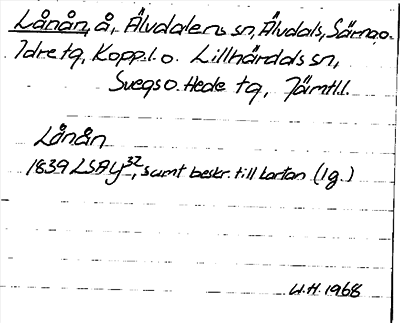 Lånån, å, Älvdalens sn, Älvdals, Särna o.
Idre tg, Kopp.l. o. Lillhärdals sn,
Svegs o. Hede tg, Jämtl.l.
Lånån
1839 LSA Y 32, samt beskr. till kartan (1g.)
U.H. 1968